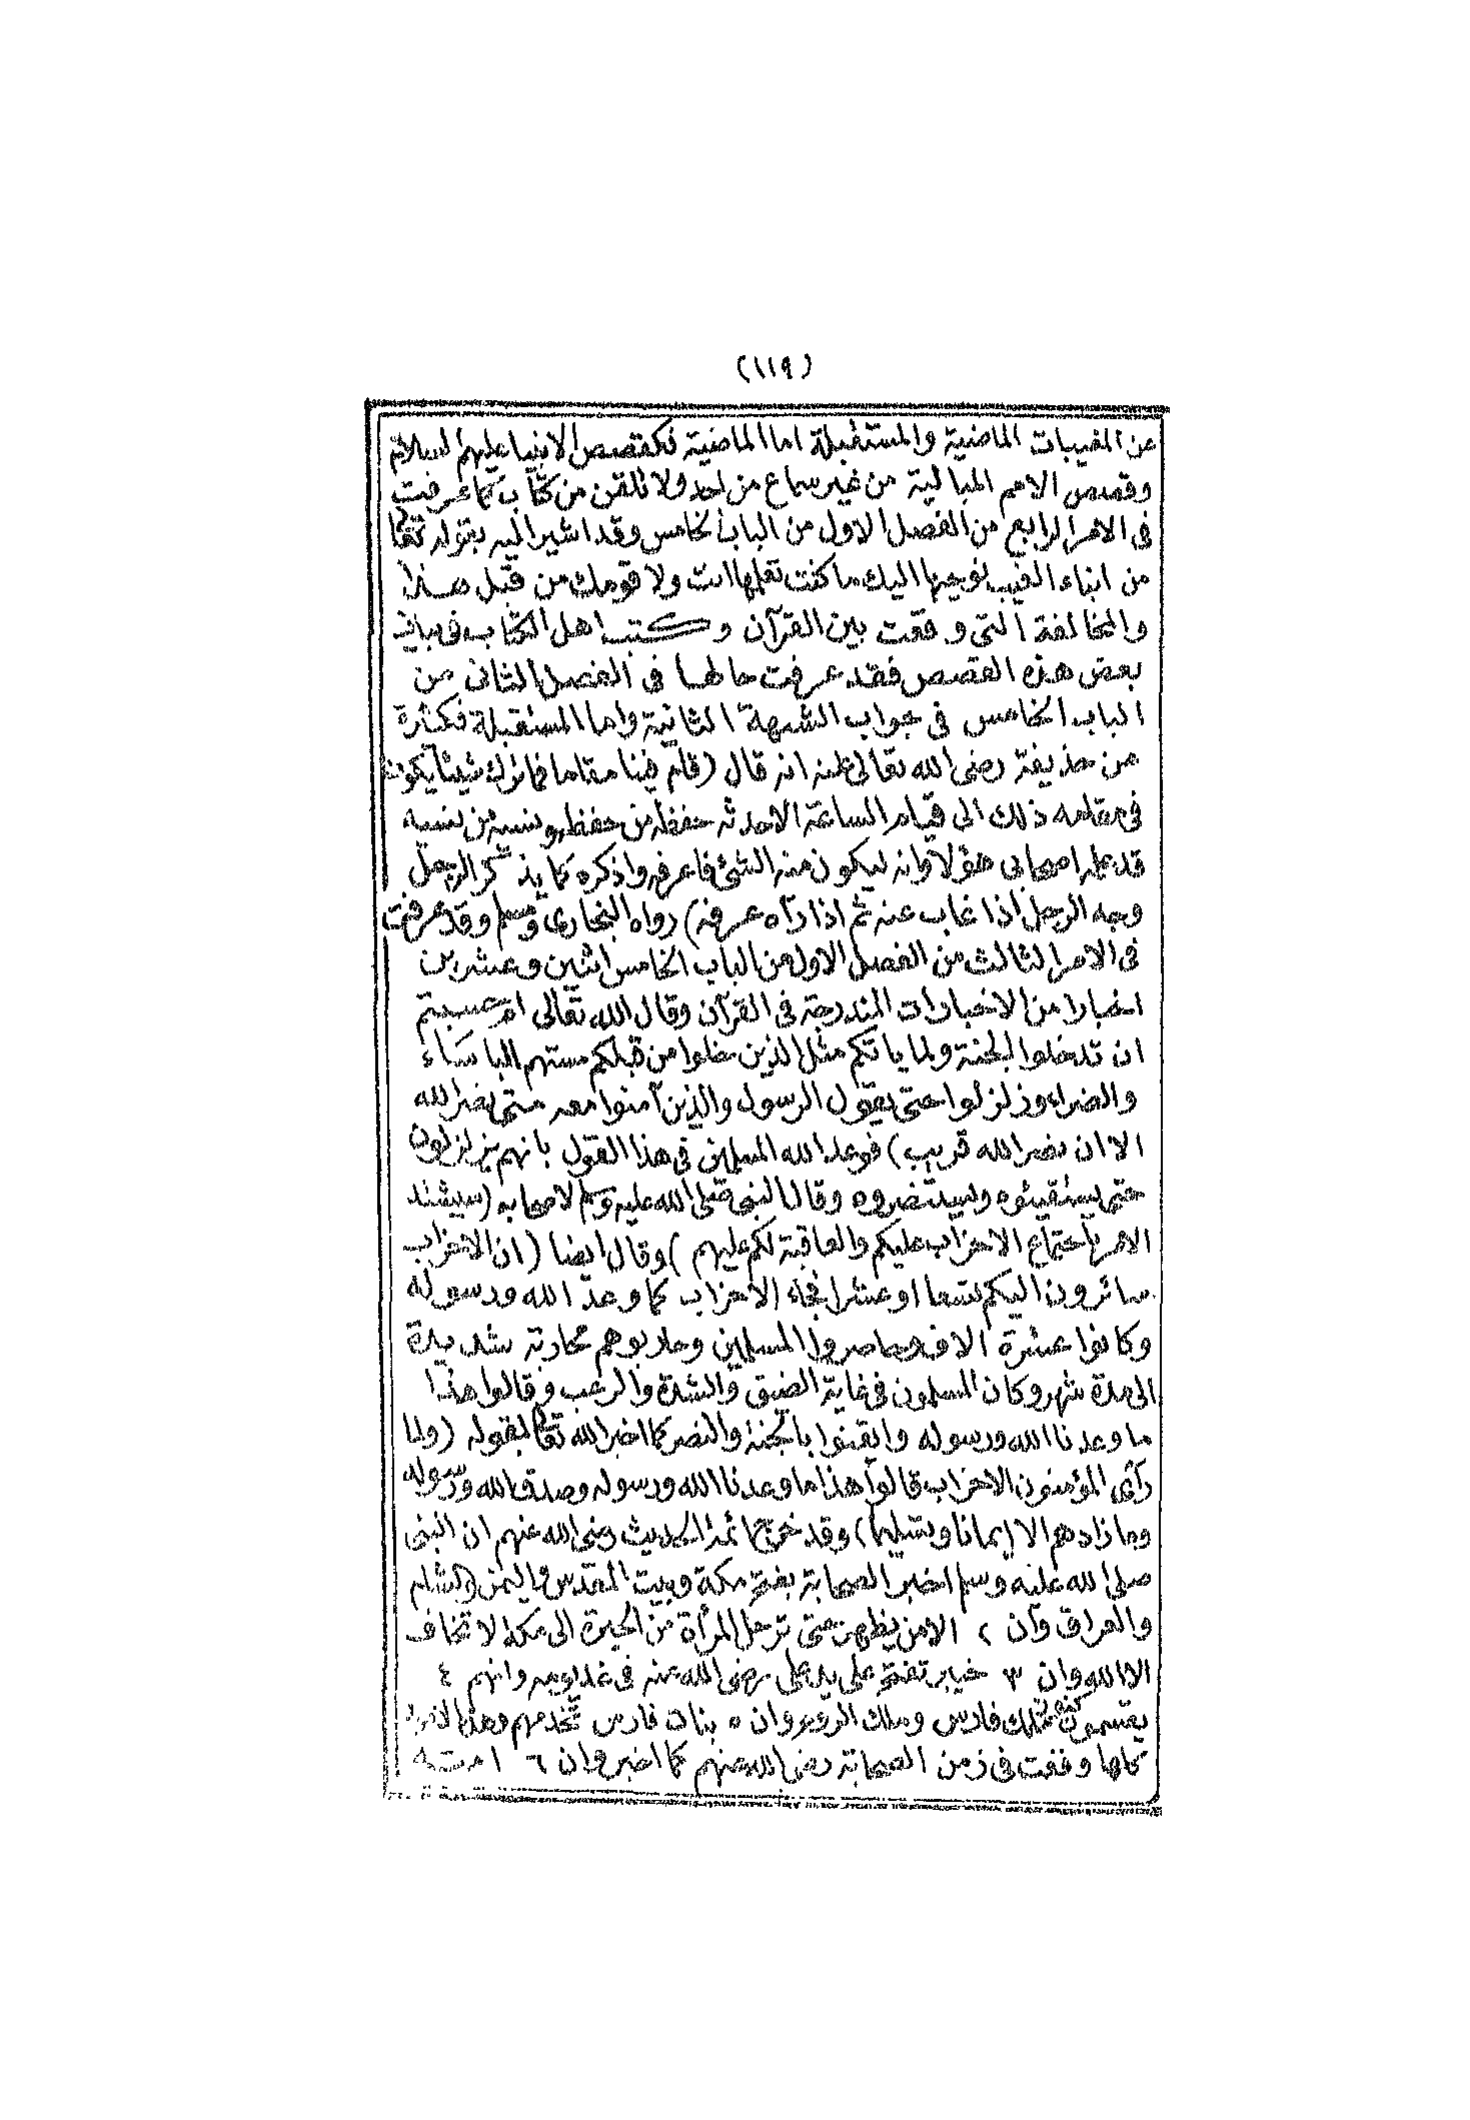 (١١٩)
عن المغيبات الماضية والمستقبلة اما الماضية فكقصص الانبيا عليهم السلام
وقصص الامم البالية من غير سماع من احد ولا تلقن من كتاب كما عرفت
فى الامر الرابع من الفصل الاول من الباب الخامس وقد اشير اليه بقوله تعالى
من انباء الغيب نوحيها اليك ما كنت تعلمها انت ولا قومك من قبل هذا
والمخالفة التى وقعت بين القرآن وكتب اهل الكتاب فى بيان
بعض هذه القصص فقد عرفت حالها فى الفصل الثانى من
الباب الخامس فى جواب الشبهة الثانية واما المستقبلة فكثرة
عن حذيفة رضى الله تعالى عنه انه قال (قام فينا مقاما فما ترك شيئا يكون
فى مقامه ذلك الى قيام الساعة الا حدثه حفظه من حفظه ونسيه من نسيه
قد علمه اصحابى هؤلاء وانه ليكون منه الشئ فاعرفه واذكره كما يذكر الرجل
وجه الرجل اذا غاب عنه ثم اذا رآه عرفه) رواه البخارى ومسلم وقد عرفت
فى الامر الثالث من الفصل الاول من الباب الخامس اثنين وعشرين
اخبارا من الاخبارات المندرجة فى القرآن وقال الله تعالى ام حسبتم
ان تدخلوا الجنة ولما ياتكم مثل الذين خلوا من قبلكم مستهم الباساء
والضراء وزلزلوا حتى يقول الرسول والذين آمنوا معه متى نصر الله
الا ان نصر الله قريب) فوعد الله المسلمين فى هذا القول بانهم يزلزلون
حتى يستغيثوه ويستنصروه وقال النبى صلى الله عليه وسلم لاصحابه (سيشتد
الامر باجتماع الاحزاب عليكم والعاقبة لكم عليهم) وقال ايضا (ان الاحزاب
سائرون اليكم تسعا او عشرا) فجاء الاحزاب كما وعد الله ورسوله
وكانوا عشرة الاف وحاصروا المسلمين وحاربوهم محاربة شديدة
الى مدة شهر وكان المسلمون فى غاية الضيق والشدة والرعب وقالوا هذا
ما وعدنا الله ورسوله وايقنوا بالجنة والنصر كما اخبر الله تعالى بقوله (ولما
رآى المؤمنون الاحزاب قالوا هذا ما وعدنا الله ورسوله وصدق الله ورسوله
وما زادهم الا إيمانا وتسليما) وقد خرج ائمة الحديث رضى الله عنهم ان النبى
صلى الله عليه وسلم اخبر الصحابة بفتح مكة وبيت المقدس واليمن والشام
والعراق وان ٢ الامن يظهر حتى ترحل المرأة من الحيرة الى مكة لا تخاف
الا الله وان ٣ خيبر تفتح على يد على رضى الله عنه فى غد يومه وانهم ٤
يقتسمون كنوز ملك فارس وملك الروم وان ٥ بنات فارس تخدمهم وهذه الامور
كلها وقعت فى زمن الصحابة رضى الله عنهم كما اخبر وان ٦ امته